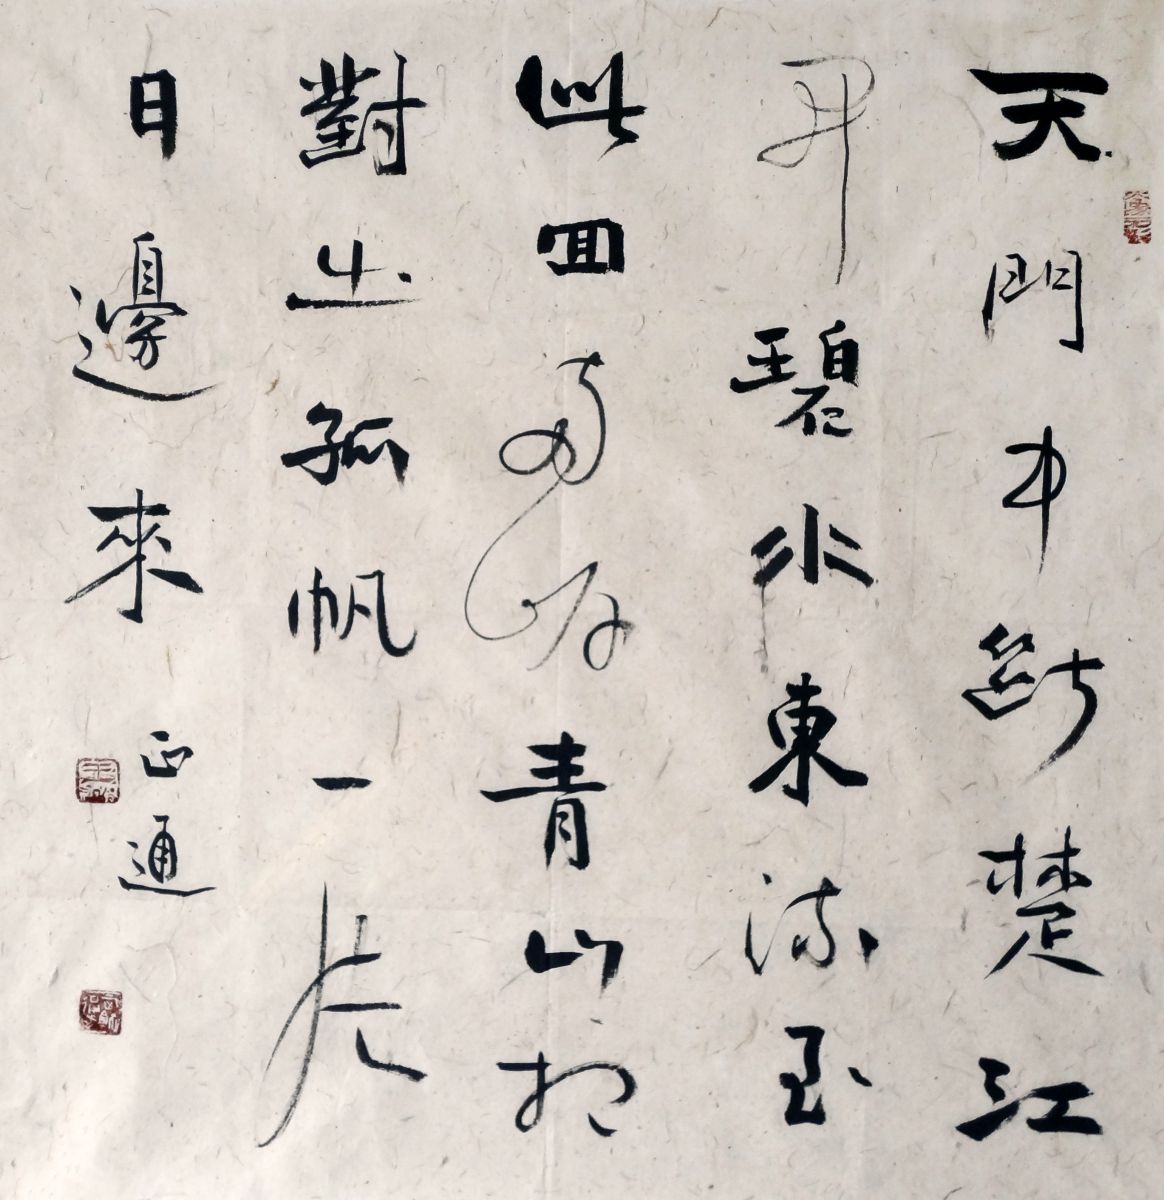 天門中断楚江
开碧水東流至
此回两岸青山相
對出孤帆一片
日邊來 正通